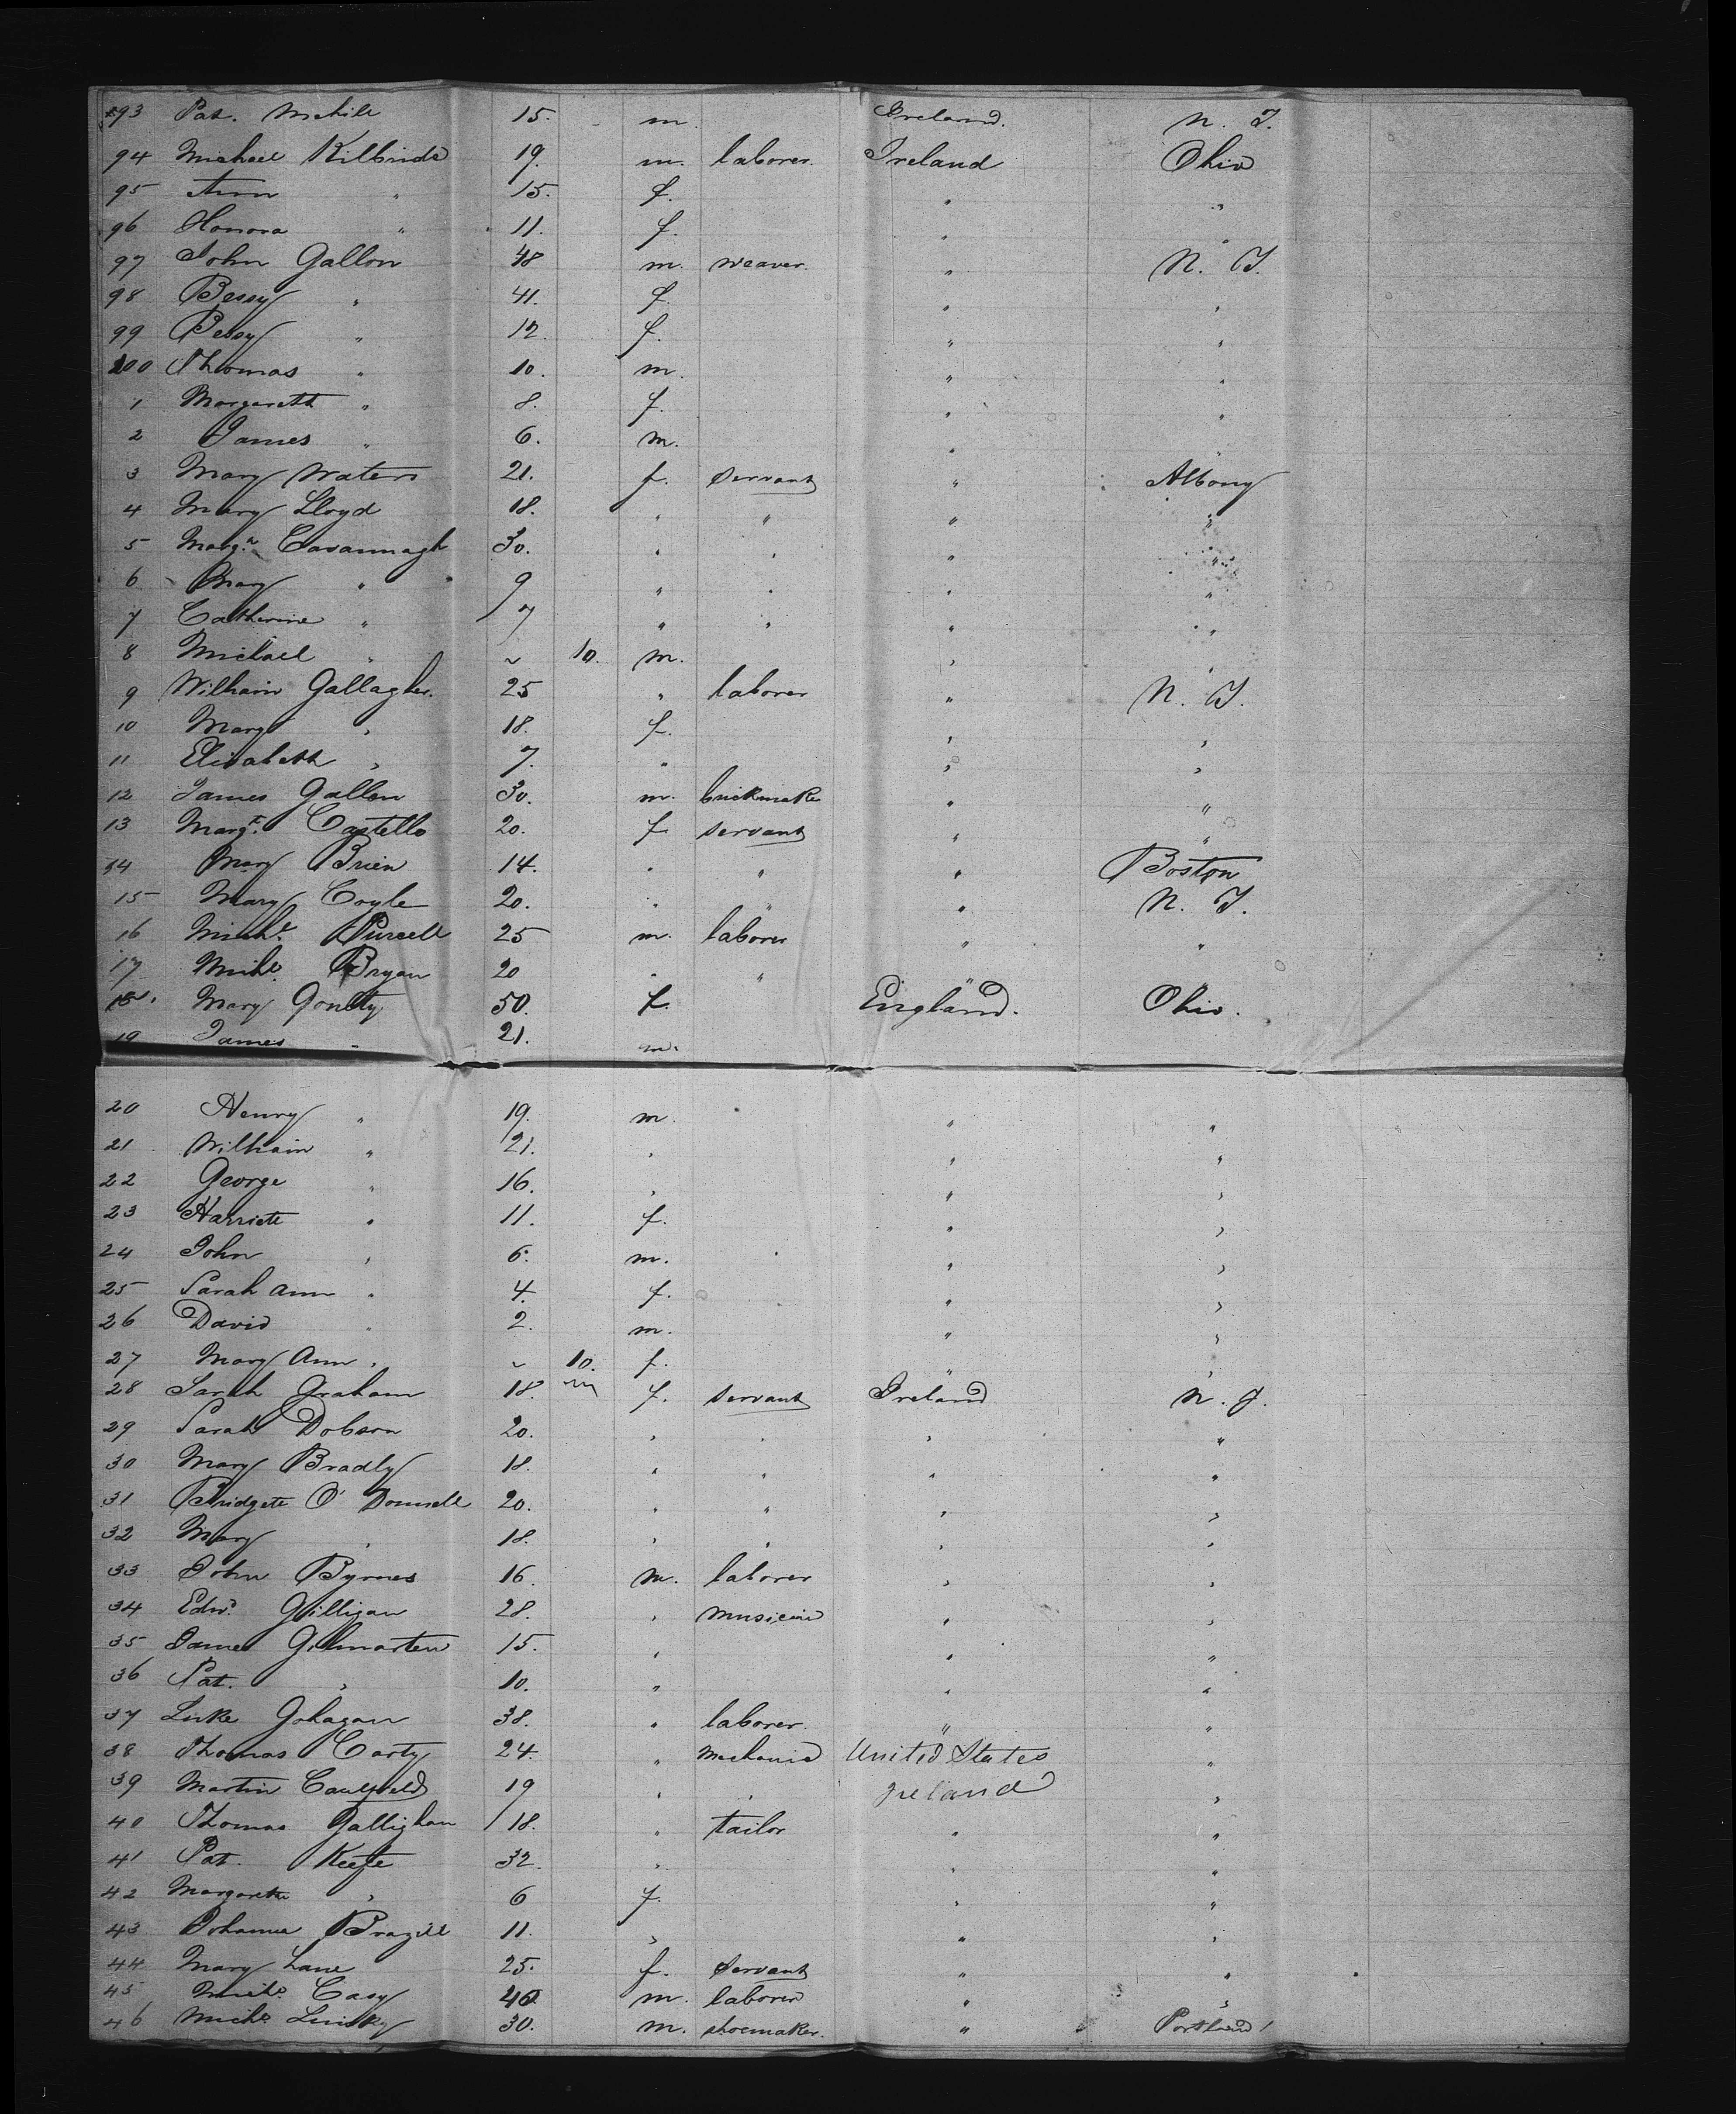 193 Pat. Mehill 15. m. Ireland. N. Y.
94 Michael Kilbride 19. m. laborer. Ireland Ohio
95 Ann " 15. f. " "
96 Honora " 11. f. " "
97 John Gallon 48 m. weaver. " N. Y.
98 Bessy " 41. f. " "
99 Bessy " 12. f. " "
200 Thomas " 10. m. " "
1 Margareth " 8. f. " "
2 James " 6. m. " "
3 Mary Waters 21. f. servant " Albany
4 Mary Lloyd 18. " " " "
5 Margt. Cavannagh 30. " " " "
6 Mary " 9 " " " "
7 Catherine " 7 " " " "
8 Michael " ~ 10. m. " "
9 William Gallagher. 25 " laborer " N. Y.
10 Margt " 18. f. " "
11 Elisabeth " 7. " " "
12 James Gallon 30. m. brickmake " "
13 Margt. Castello 20. f. servant " "
14 Mary Brien 14. " " " Boston
15 Mary Coyle 20. " " " N. Y.
16 Michl. Purcell 25 m. laborer " "
17 Michl. Bryan 20 " " "
18. Mary Goulty 50. f. England. Ohio.
19 James " 21. m.
20 Henry " 19. m. " "
21 William " 21. " " "
22 George " 16. " " "
23 Harriett " 11. f. " "
24 John " 6. m. " "
25 Sarah Ann " 4. f. " "
26 David " 2. m. " "
27 Mary Ann " ~ 10. f. " "
28 Sarah Graham 18. m f. servant Ireland N. Y.
29 Sarah Dobson 20. " " " "
30 Mary Bradly 18. " " " "
31 Bridgett O'Donnell 20. " " " "
32 Mary " 18. " " " "
33 John Byrnes 16. m. laborer " "
34 Edwd. Gilligan 28. " musicien " "
35 James Gilmarten 15. " " "
36 Pat. " 10. " " "
37 Luke Gohagan 38. " laborer. " "
38 Thomas Carty 24. " Mechanic United States "
39 Martin Caulfield 19 " " Ireland "
40 Thomas Gallighan 18. " tailor " "
41 Pat. Keefe 32. " " "
42 Margareth " 6 f. " "
43 Johanna Brazill 11. " " "
44 Mary Lane 25. f. servant " "
45 Michl. Casy 40 m. laborer " "
46 Michl. Linsky 30. m. shoemaker. " Portland